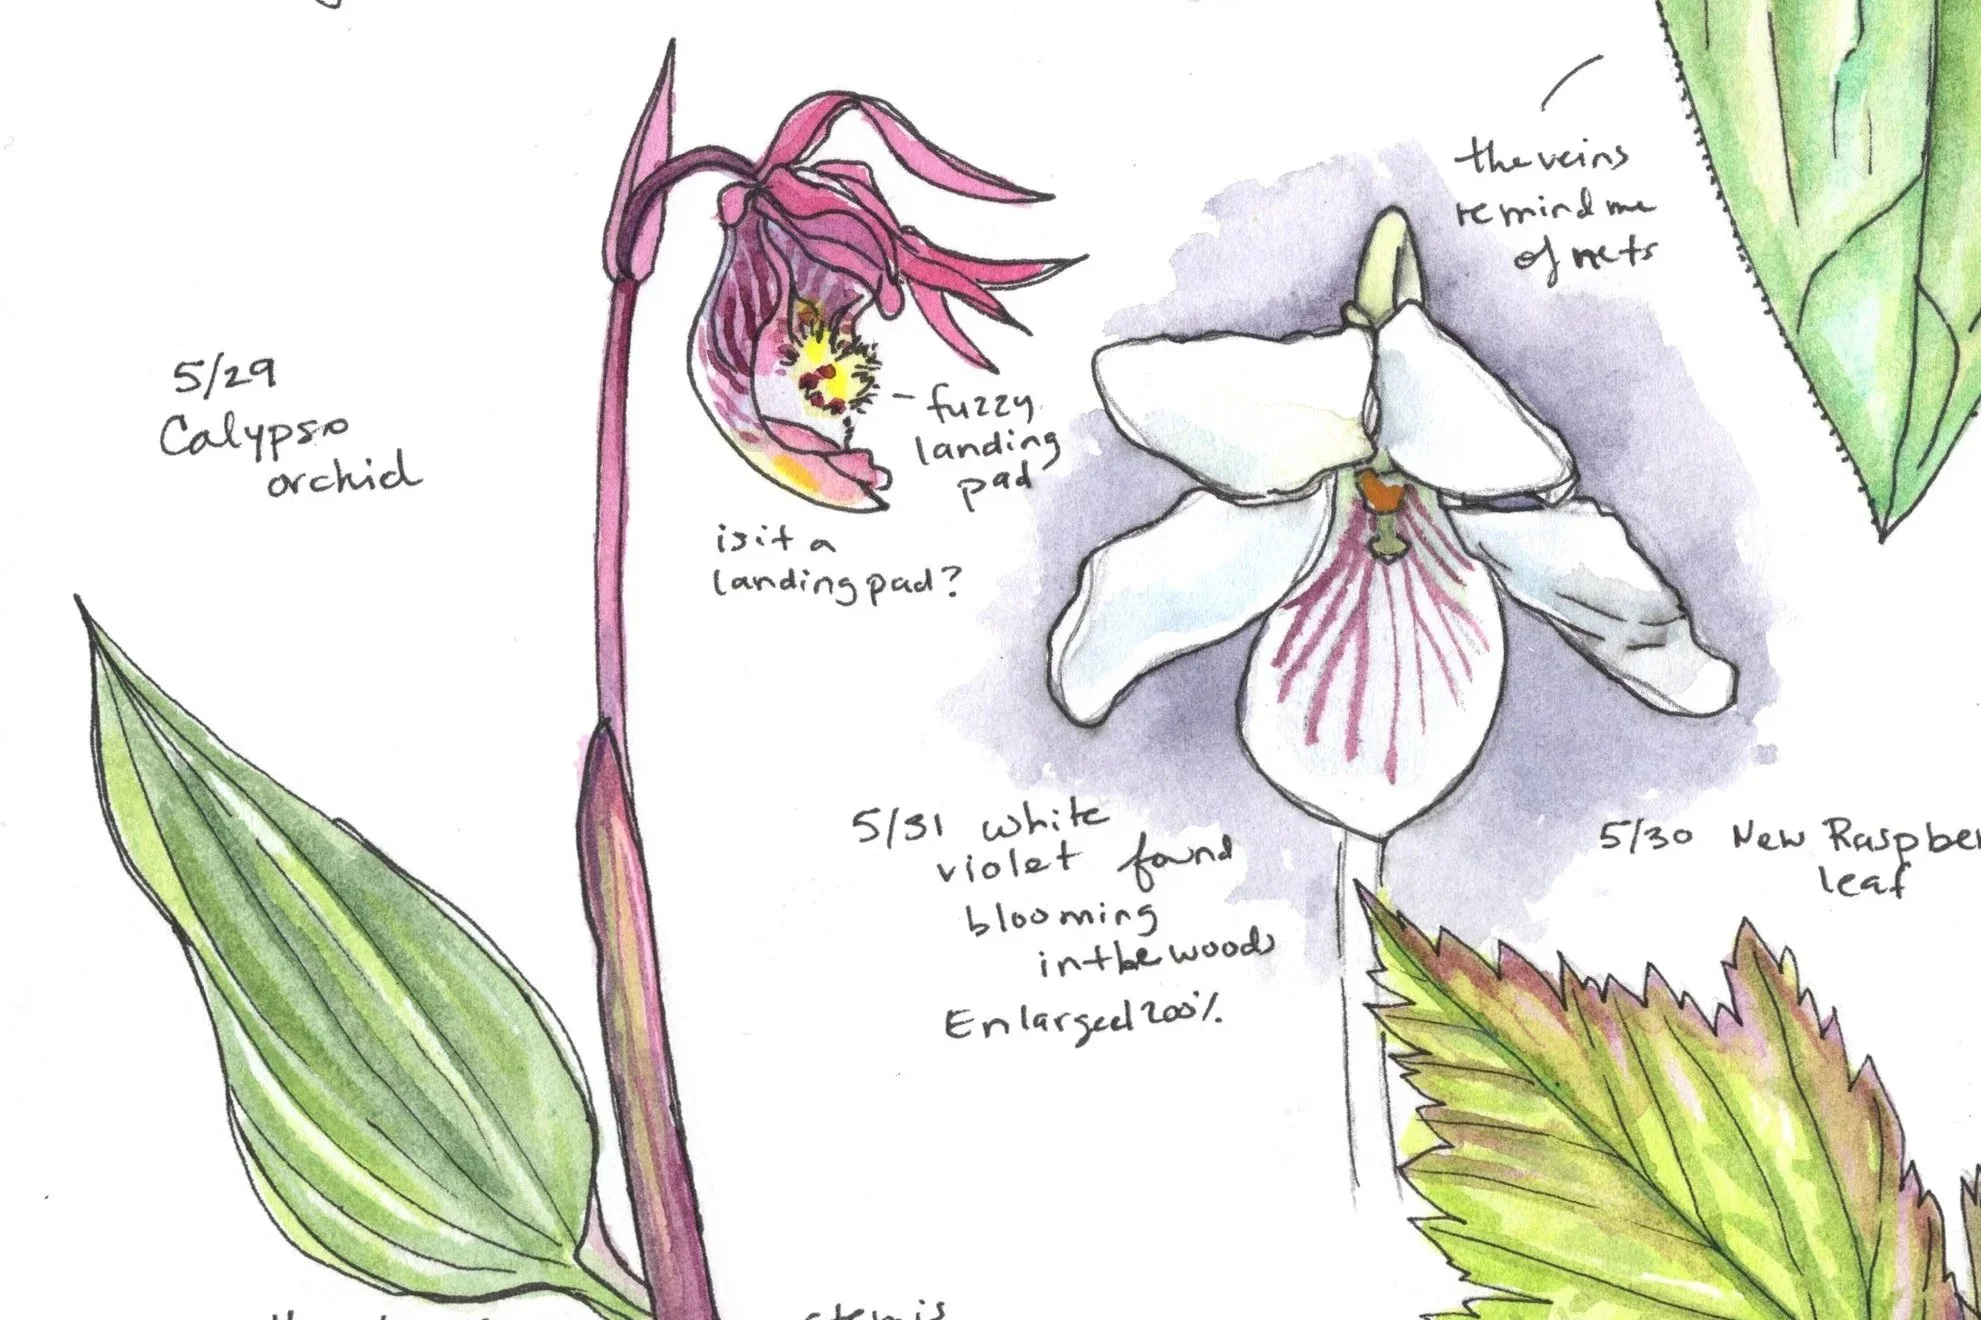 the veins
remind me
of nets
5/29
Calypso
orchid
- fuzzy
landing
pad
is it a
landing pad?
5/31 white
violet found
blooming
in the woods
Enlarged 200%
5/30 New Raspber
leaf
stem is